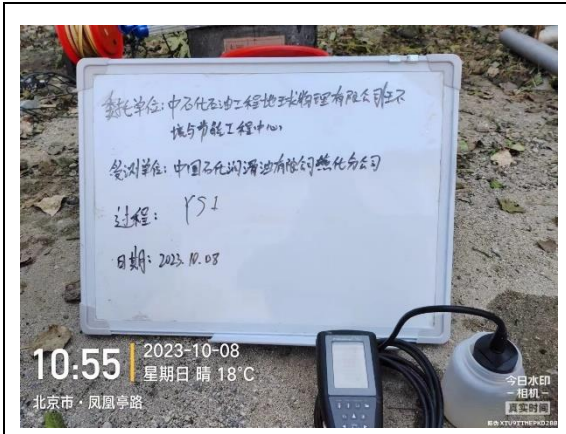 委托单位:中石化石油工程地球物理有限公司环
境与节能工程中心
受测单位:中国石化润滑油有限公司燕化分公司
过程: YSI
日期: 2023.10.08
10:55
2023-10-08
星期日 晴 18°C
北京市·凤凰亭路
今日水印
-相机-
真实时间